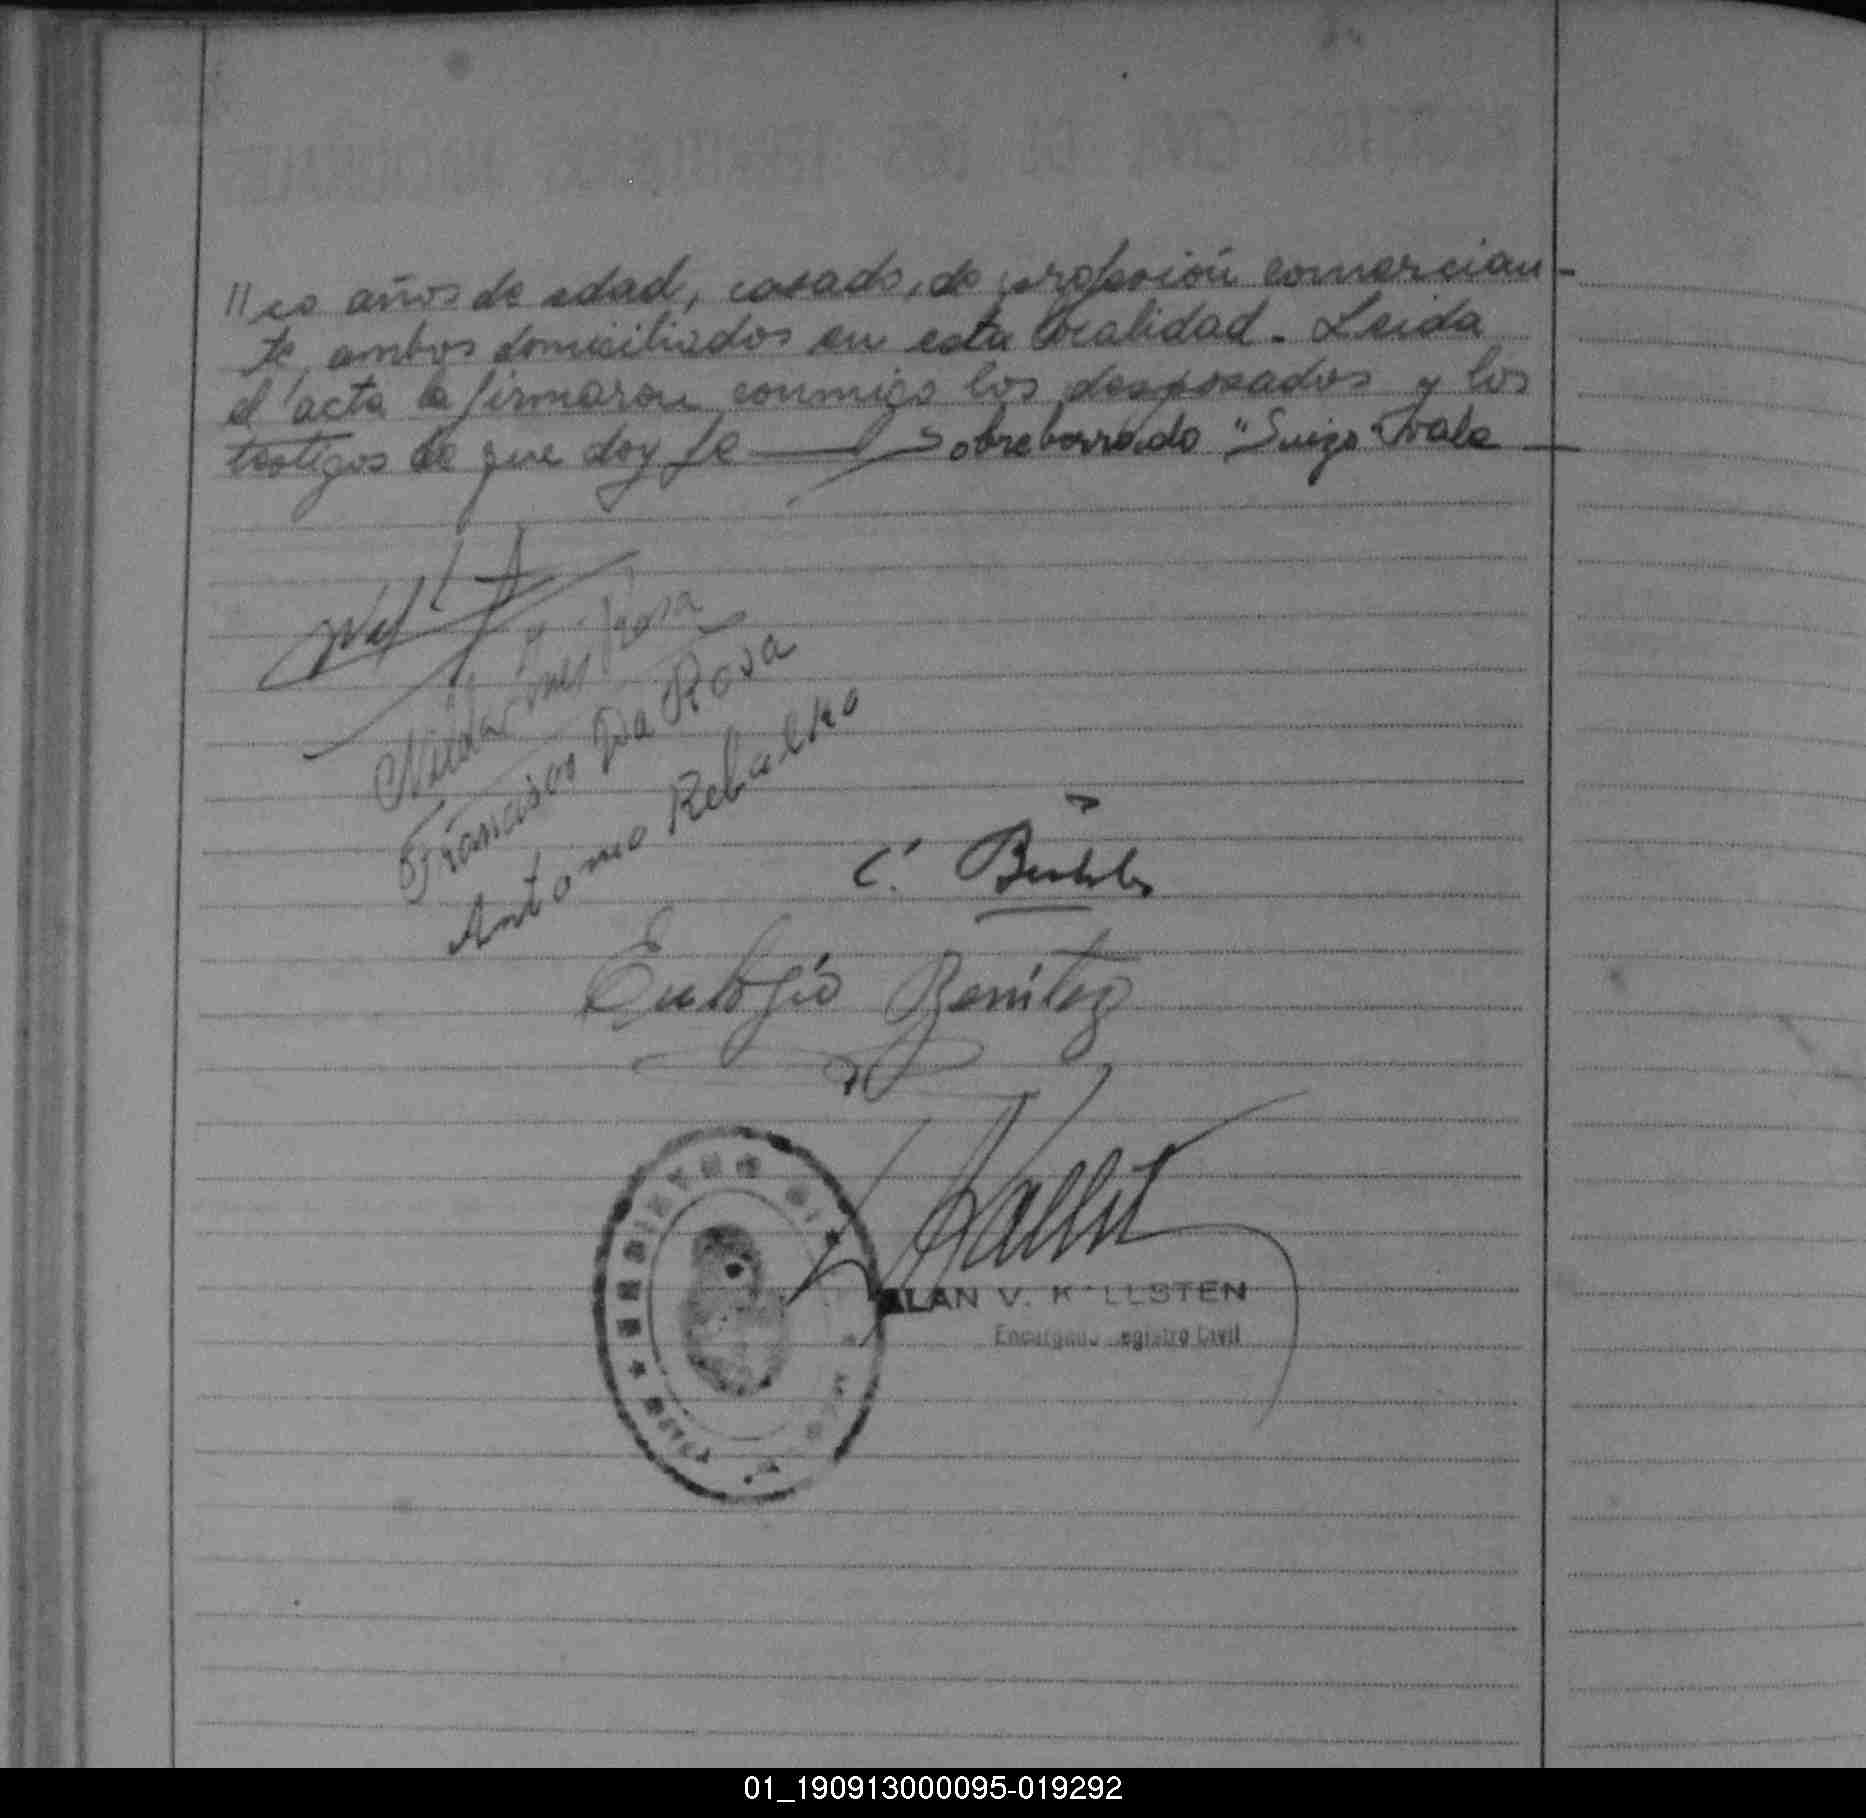 // co años de edad, casado, de profesión comercian-
te, ambos domiciliados en esta localidad. Leida
el acta la firmaron conmigo los desposados y los
testigos de que doy fe — Sobreborrado "Suizo" Vale —
Nilda Ines Rosa
Francisco Da Rosa
Antonio Rebalko
C.
Eulogio Benítez
ALAN V. K LLSTEN
Encargado Registro Civil
01_190913000095-019292